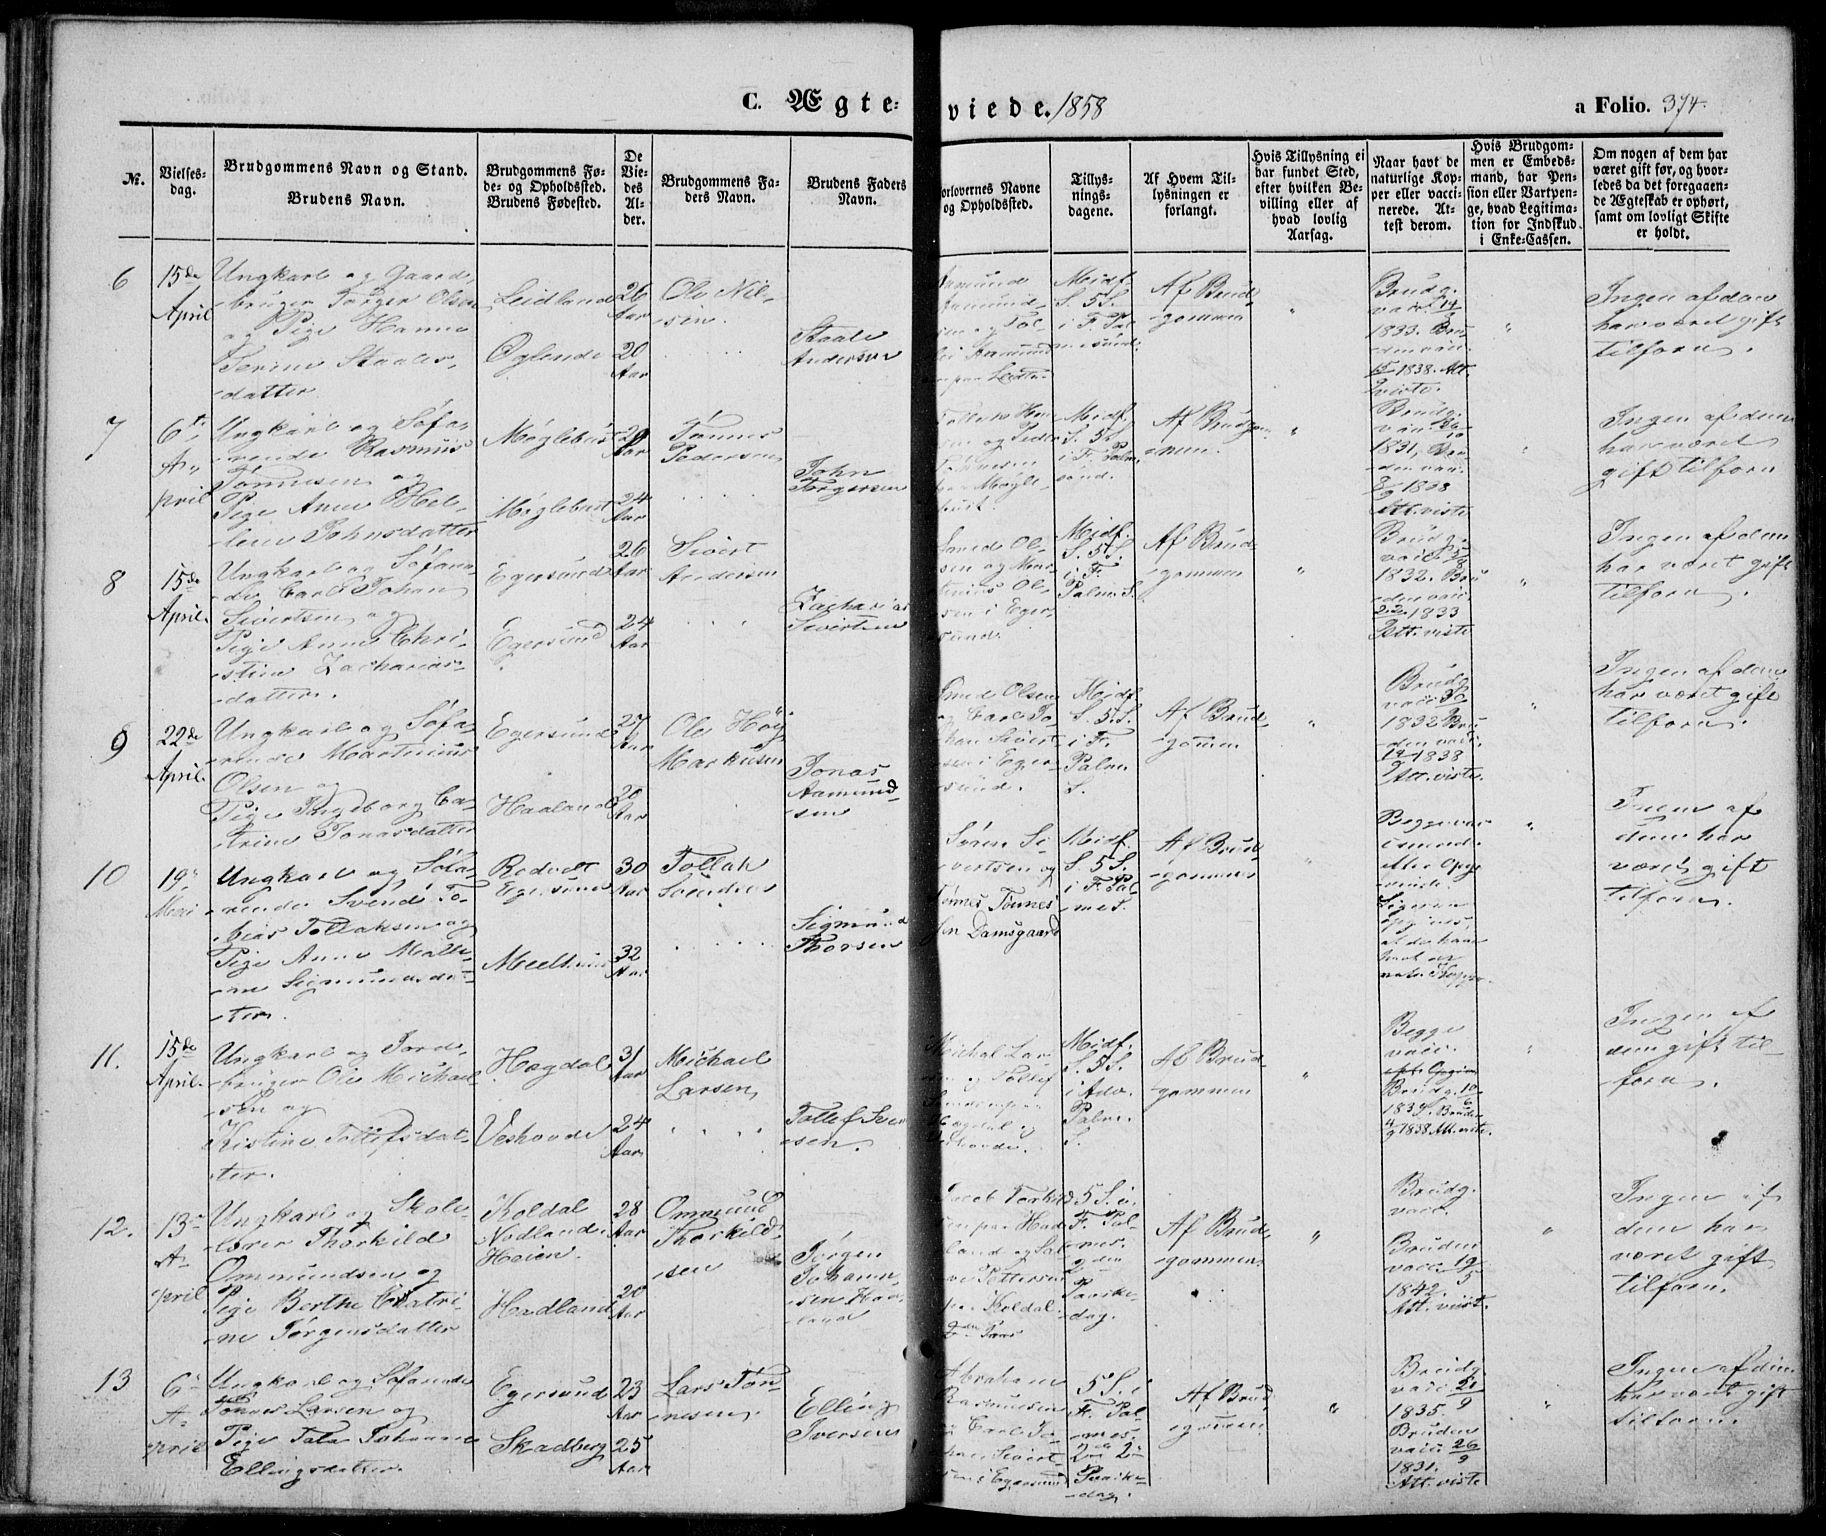 C. Ægteviede. 1858
a Folio. 374.
No.
Vielsesdag.
Brudgommens Navn og Stand.
Brudens Navn.
Brudgommens Fø-
de- og Opholdssted.
Brudens Fødested.
De
Vie-
des
Al-
der.
Brudgommens Fa-
ders Navn.
Brudens Faders
Navn.
orlovernes Navne
og Opholdssted.
Tillys-
nings-
dagene.
Af Hvem Til-
lysningen er
forlangt.
Hvis Tillysning ei
har fundet Sted,
efter hvilken Be-
villing eller af
hvad lovlig
Aarsag.
Naar havt de
naturlige Kop-
per eller vacci-
nerede. At-
test derom.
Hvis Brudgom-
men er Embeds-
mand, har Pen-
sion eller Vartpen-
ge, hvad Legitima-
tion for Indskud
i Enke-Cassen.
Om nogen af dem har
været gift før, og hvor-
ledes da det foregaaen-
de Ægteskab er ophørt,
samt om lovligt Skifte
er holdt.
6
15de
April
Ungkarl og Gaard-
bruger Torger Olsen
og Pige Hanne
Serine Staales-
datter
Leidland
Oglende
26
Aar
20
Aar
Ole Nil-
sen.
Staale
Andersen
Midf.
S. 5 S.
i F. Pal
mesønd.
Af Brud-
gommen
Brudg.
vacc.
1833. Bru-
den vacc.
1838. Att.
viste.
Ingen af dem
har været gift
tilforn.
7
6te
A-
pril
Ungkarl og Søfa-
rende Rasmus
Tønnesen og
Pige Anne Hel-
lene Johnsdatter
Møglebust
Møglebust
Aar
24
Aar
Tønnes
Pedersen
John
Torgersen
Midf.
S. 5 S.
i F. Palm
sønd.
Af Brudgom-
men.
Brudg.
vacc.
1831, Bru-
den vacc.
1838
Att. viste
Ingen af dem
har været
gift tilforn
8
15de
April.
Ungkarl og Søfaren-
de Carl Johan
Sivertsen og
Pige Anne Chri-
stine Zacharias-
datter.
Egersund
Egersund
26
Aar
24
Aar
Sivert
Andersen
Zacharias
Sivertsen
Svend Ol-
sen og Mar-
tinius Ol-
sen i Eger-
sund.
Midf.
S. 5 S.
i F.
Palm. S.
Af Brud
gommen
Brudg.
vacc.
1832. Bru
den vacc.
1833
Att. viste
Ingen af dem
har været gift
tilforn.
9
22de
April.
Ungkarl og Søfa-
rende Martinius
Olsen og
Pige Ingeborg Ca-
trine Jonasdatter
Egersund
Haaland
27
Aar
20
Aar
Ole Høg
Markusen
Jonas
Aamund-
sen
Svend Olsen
og Carl Jo-
han Sivert-
sen i Eger-
sund.
Midf.
S. 5. S.
i F.
Palm.
S.
Af Brud-
gommen
Brudg.
vacc.
1832 Bru
den vacc.
1838
Att. viste.
Ingen af dem
har været gift
tilforn.
10
19de
Mai
Ungkarl og Søfa-
rende Svend To-
bias Tollaksen og
Pige Anne Malle-
ne Sigmundsdat-
ter.
Rodvelt
Egersund
30
Aar
32
Aar
Tollak
Svendsen
Sigmund
Thorsen
Søren Si-
vertsen og
Tønnes Tønnes
sen Damsgaard
Midf.
S. 5 S.
i F. Pal-
me S.
Af Brud-
gommen
Begge vac
Ingen af
dem har
været gift
tilforn.
11.
15de
April.
Ungkarl og Jord-
bruger Ole Michael
sen og
Kistine Tollefsdat-
ter.
Hægdal
Veshovde
31
Aar
24
Aar
Michael
Larsen
Tollef Sven
sen.
Michal Lar
sen og Tollef
Midf.
S. 5 S.
i Adv.
Palm.
S.
Af Brud-
gommen
Begge
vacc.
Brudg. 10/6
1834. Bruden
4/9 1838 Att. viste.
Ingen af
dem gift til-
forn.
12.
13de
A-
pril
Ungkarl og Skole-
lærer Thorkild
Ommundsen og
Pige Berthe Catri-
ne Jørgensdatter
Koldal
Nodland i
Heien.
Hadland
28
Aar
20
Aar
Ommund
Thorkild-
sen
Jørgen
Johann-
sen Had-
land
Jacob Torkild
sen paa Had
land og Sal
ve Pettersen
paa Koldal
5 S. i
F. Pal-
mes.
2den
Paaske-
dag.
Af Brud-
gommen
Brudg.
vacc.
Bruden
vacc. 19/5
1842.
Att. viist.
Ingen af
dem har
været gift
tilforn.
13
6te
A-
pril
Ungkarl og Søfarende
Tønnes Larsen og
Pige Tala Johanne
Ellingsdatter.
Egersund
Skadberg
23
Aar
25
Aar
Lars Tøn-
nesen
Elling
Iversen
Abraham
Rasmussen
og Carl Jo-
han Sivert
sen i Egersund
5 S. i
F. Pal-
mes.
2de
Paaske-
dag.
Af Brud-
gommen
Brudg.
vacc. 21/9
1835
Bruden
vacc. 26/9
1831.
Att. viste
Ingen af dem
har været gift
tilforn.